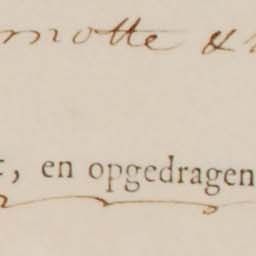 motte &
, en opgedragen